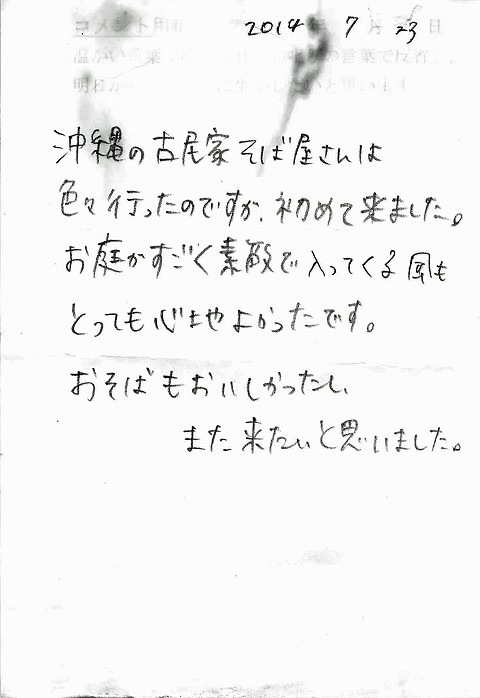 コメント用紙 2014 年 7 月 23 日
沖縄の古居家そば屋さんは
色々行ったのですが、初めて来ました。
お庭がすごく素敵で入ってくる風も
とっても心地よかったです。
おそばもおいしかったし、
また来たいと思いました。